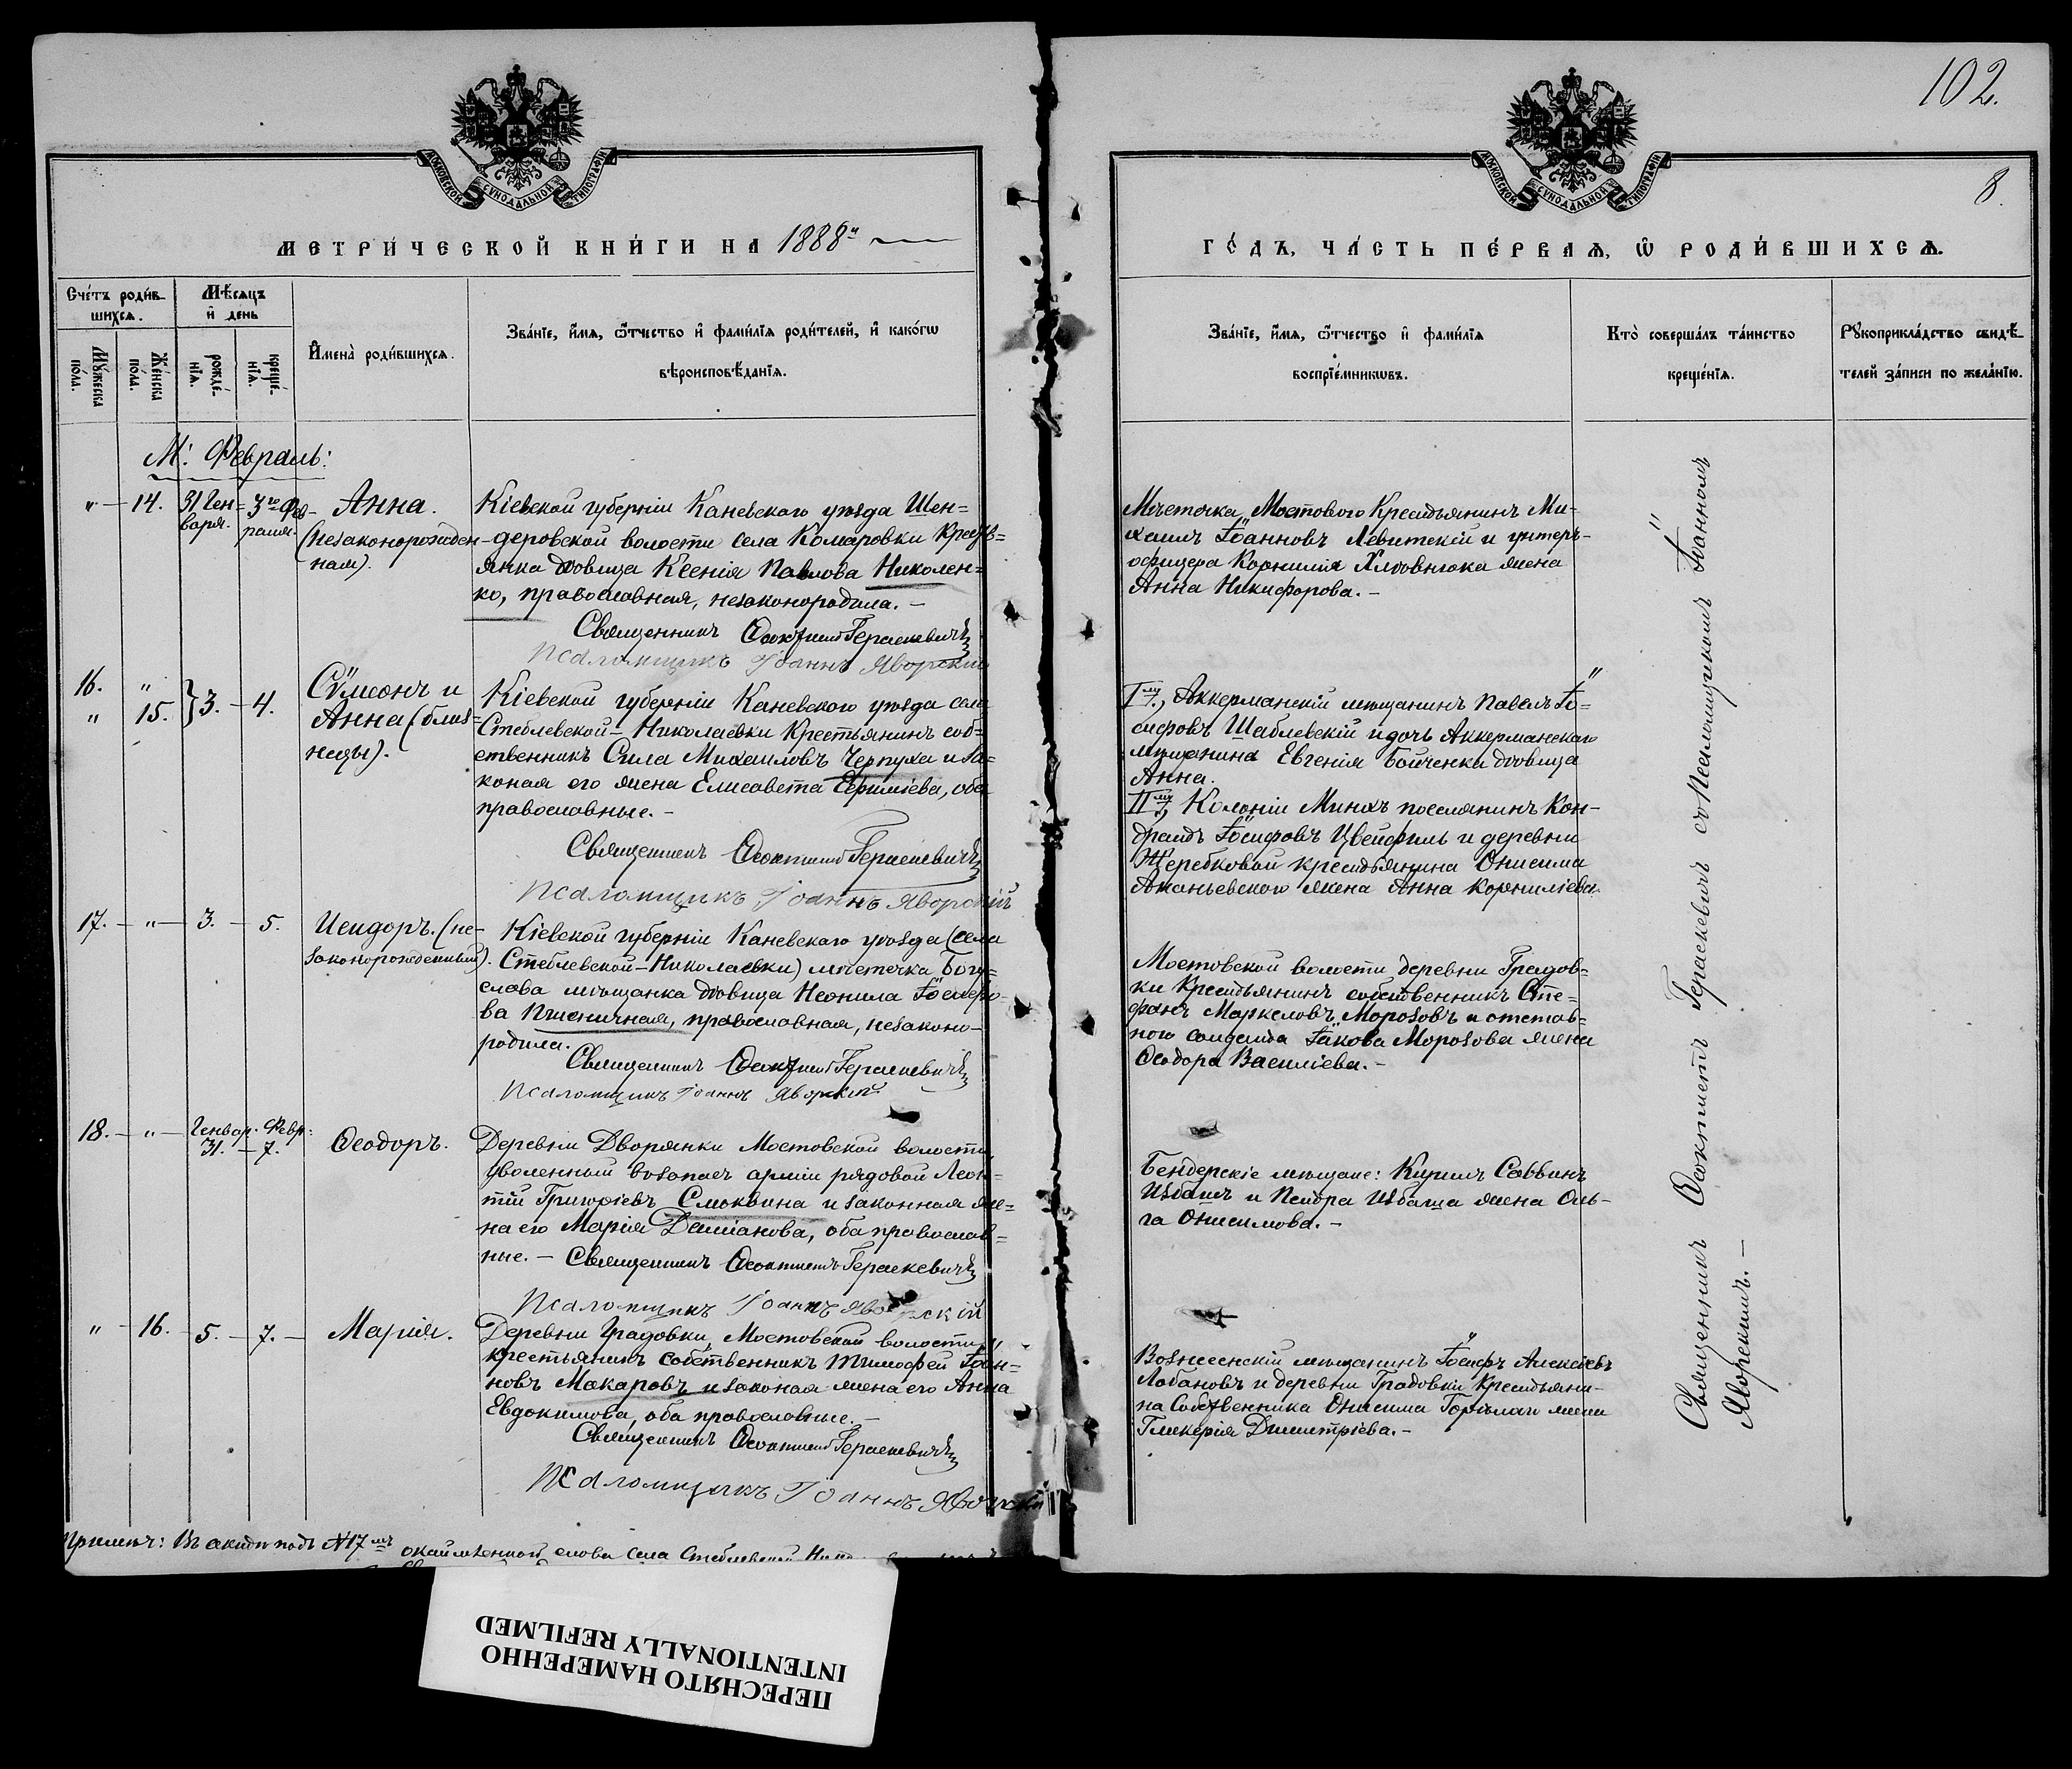 102.
8
МОСКОВСКОЙ СѴНОДАЛЬНОЙ ТИПОГРАФІИ
МОСКОВСКОЙ СѴНОДАЛЬНОЙ ТИПОГРАФІИ
МЕТРИ́ЧЕСКОЙ КНИ́ГИ НА 1888й
ГО́ДЪ, ЧА́СТЬ ПЕ́РВАѦ, Ѡ҆ РОДИ́ВШИХСѦ.
Сче́тъ роди́в-
шихсѧ.
Мѣ́сѧцъ
и҆ де́нь
Мꙋ́жеска
по́ла.
Же́нска
по́ла.
рожде́-
нїѧ.
креще́-
нїѧ.
И҆мена̀ роди́вшихсѧ.
Зва́нїе, и҆́мѧ, ѻ҆́тчество и҆ фами́лїѧ роди́телей, и҆ како́гѡ
вѣроисповѣ́данїѧ.
Зва́нїе, и҆́мѧ, ѻ҆́тчество и҆ фами́лїѧ
воспрїе́мникѡвъ.
Кто̀ соверша́лъ та́инство
креще́нїѧ.
Рꙋкоприкла́дство свидѣ́-
телей за́писи по жела́нїю.
М: Февраль:
" 14. 31 Ген= 3го Фев- Анна.
варя. раля. (незаконорожден-
ная).
Кіевской губерніи Каневскаго уѣзда Шен-
деровской волости села Комаровки Кресть=
янка вдовица Ксенія Павлова Николен=
ко, православная, незаконородила. –
Священникъ Ѳеоктистъ Гераскевичъ
Псаломщикъ Іоаннъ Яворскій
Мѣстечка Мостового Крестьянинъ Ми-
хаилъ Іоанновъ Левитскій и унтеръ-
офицера Корнилія Хлѣвнюка жена
Анна Никифорова. –
16. " } 3. – 4. Сѵмеонъ и
" 15. Анна (близ=
нецы).
Кіевской губерніи Каневского уѣзда села
Стеблевской–Николаевки Крестьянинъ соб=
ственникъ Сила Михаиловъ Черпуха и за=
коная его жена Елисавета Ефиміева, оба
православные. –
Священникъ Ѳеоктистъ Гераскевичъ
Псаломщикъ Іоаннъ Яворскій
Iму, Аккерманскій мѣщанинъ Павелъ Іо=
сифовъ Шаблевскій и дочь Аккерманскаго
мѣщанина Евгенія Бойченки вдовица
Анна.
IIму, Колоніи Минхъ поселянинъ Кон-
дратъ Іосифовъ Цвейфиль и деревни
Жеребковой крестьянина Онисима
Ананьевского жена Анна Корниліева.
17. – " – 3. – 5. Исидоръ. (не-
законорожденный).
Кіевской губерніи Каневскаго уѣзда (села
Стеблевской–Николаевки) мѣстечка Богу=
слава мѣщанка вдовица Неонила Іосифо-
ва Пшеничная, православная, незаконо-
родила.
Священникъ Ѳеоктистъ Гераскевичъ
Псаломщикъ Іоаннъ Яворскій
Мостовской волости деревни Градов=
ки Крестьянинъ собственникъ Сте=
фанъ Маркеловъ Морозовъ и отстав=
ного солдата Іакова Морозова жена
Ѳеодора Василіева. –
18. – " – Генвар. Февр:
31. – 7. Ѳеодоръ.
Деревни Дворянки Мостовской волости,
уволенный въ запасъ арміи рядовой Леон=
тій Григоріевъ Смоквина и законная же=
на его Марія Даміанова, оба православ=
ные. – Священникъ Ѳеоктистъ Гераскевичъ
Псаломщикъ Іоаннъ Яворскій
Бендерскіе мѣщане: Кирилъ Саввинъ
Избашъ и Петра Избаша жена Оль-
га Онисимова. –
" – 16. – 5. – 7. – Марія.
Деревни Градовки, Мостовской волости,
крестьянинъ собственникъ Тимофей Іоан=
новъ Макаровъ и законая жена его Анна
Евдокимова, оба православные. –
Священникъ Ѳеоктистъ Гераскевичъ
Псаломщикъ Іоаннъ Яворскій
Вознесенскій мѣщанинъ Іосифъ Алексіевъ
Лобановъ и деревни Градовки Крестьяни-
на Собственника Онисима жена
Гликерія Димитріева. –
Священникъ Ѳеоктистъ Гераскевичъ съ Псаломщикомъ Іоанномъ
Яворскимъ. –
Примѣч: Въ актѣ подъ №17мъ окаймленной слова села Стеблевской
ПЕРЕСНЯТО НАМЕРЕННО
INTENTIONALLY REFILMED